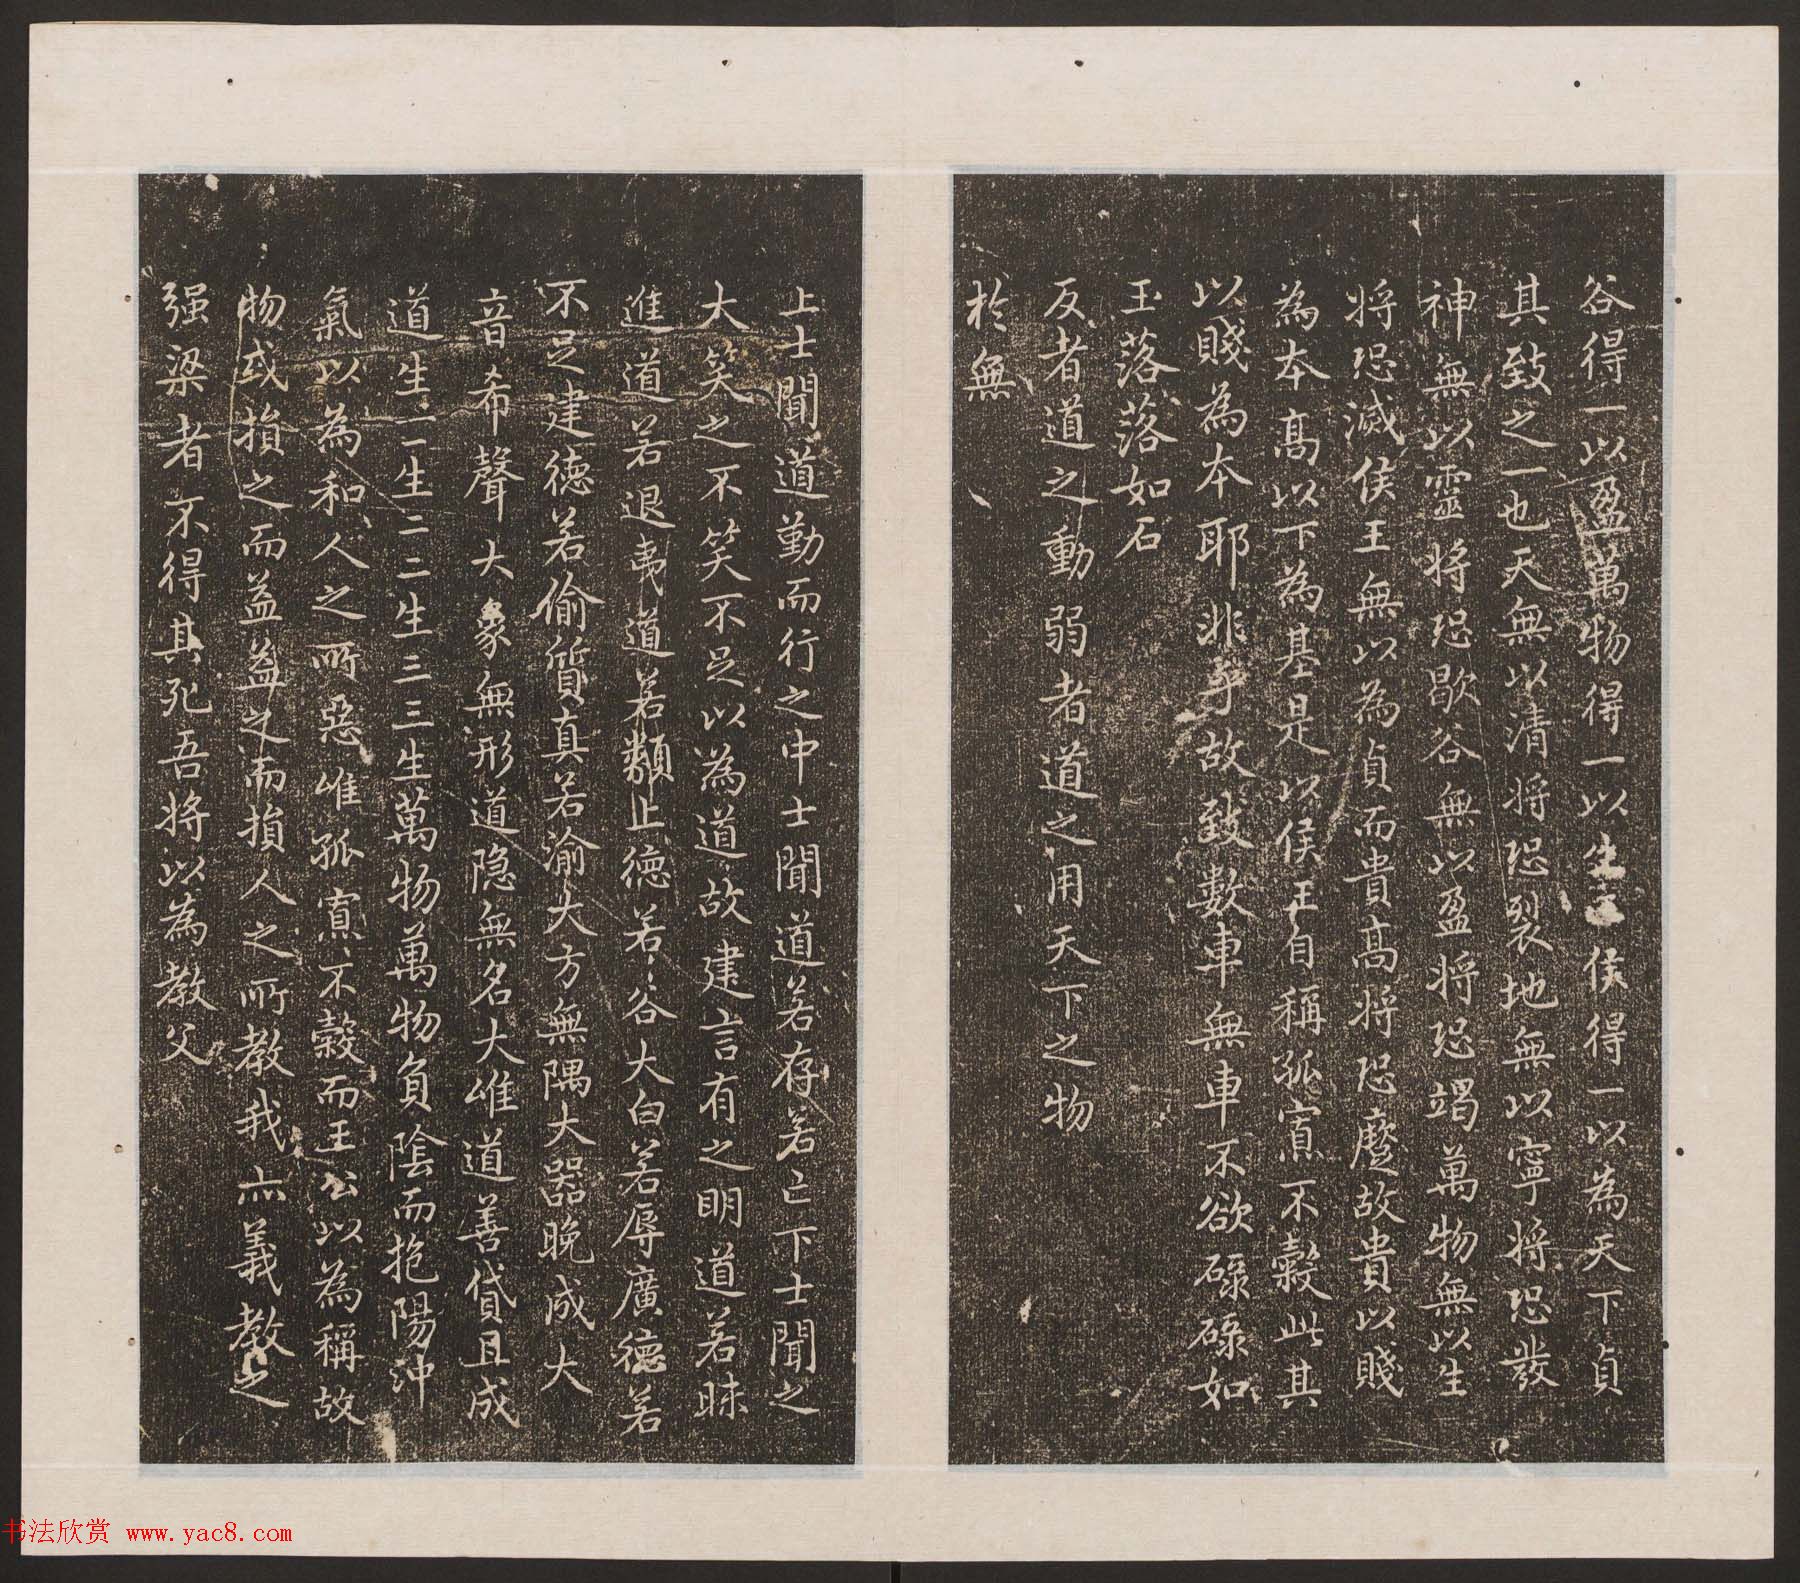 谷得一以盈萬物得一以生王侯得一以為天下貞
其致之一也天無以清將恐裂地無以寧將恐發
神無以靈將恐歇谷無以盈將恐竭萬物無以生
將恐滅侯王無以為貞而貴高將恐蹷故貴以賤
為本高以下為基是以侯王自稱孤寡不穀此其
以賤為本耶非乎故致數車無車不欲琭琭如
玉落落如石
反者道之動弱者道之用天下之物
於無
上士聞道勤而行之中士聞道若存若亡下士聞之
大笑之不笑不足以為道故建言有之明道若昧
進道若退夷道若類上德若谷大白若辱廣德若
不足建德若偷質真若渝大方無隅大器晚成大
音希聲大象無形道隱無名夫唯道善貸且成
道生一一生二二生三三生萬物萬物負陰而抱陽沖
氣以為和人之所惡唯孤寡不穀而王公以為稱故
物或損之而益益之而損人之所教我亦義教之
强梁者不得其死吾將以為教父
书法欣赏 www.yac8.com